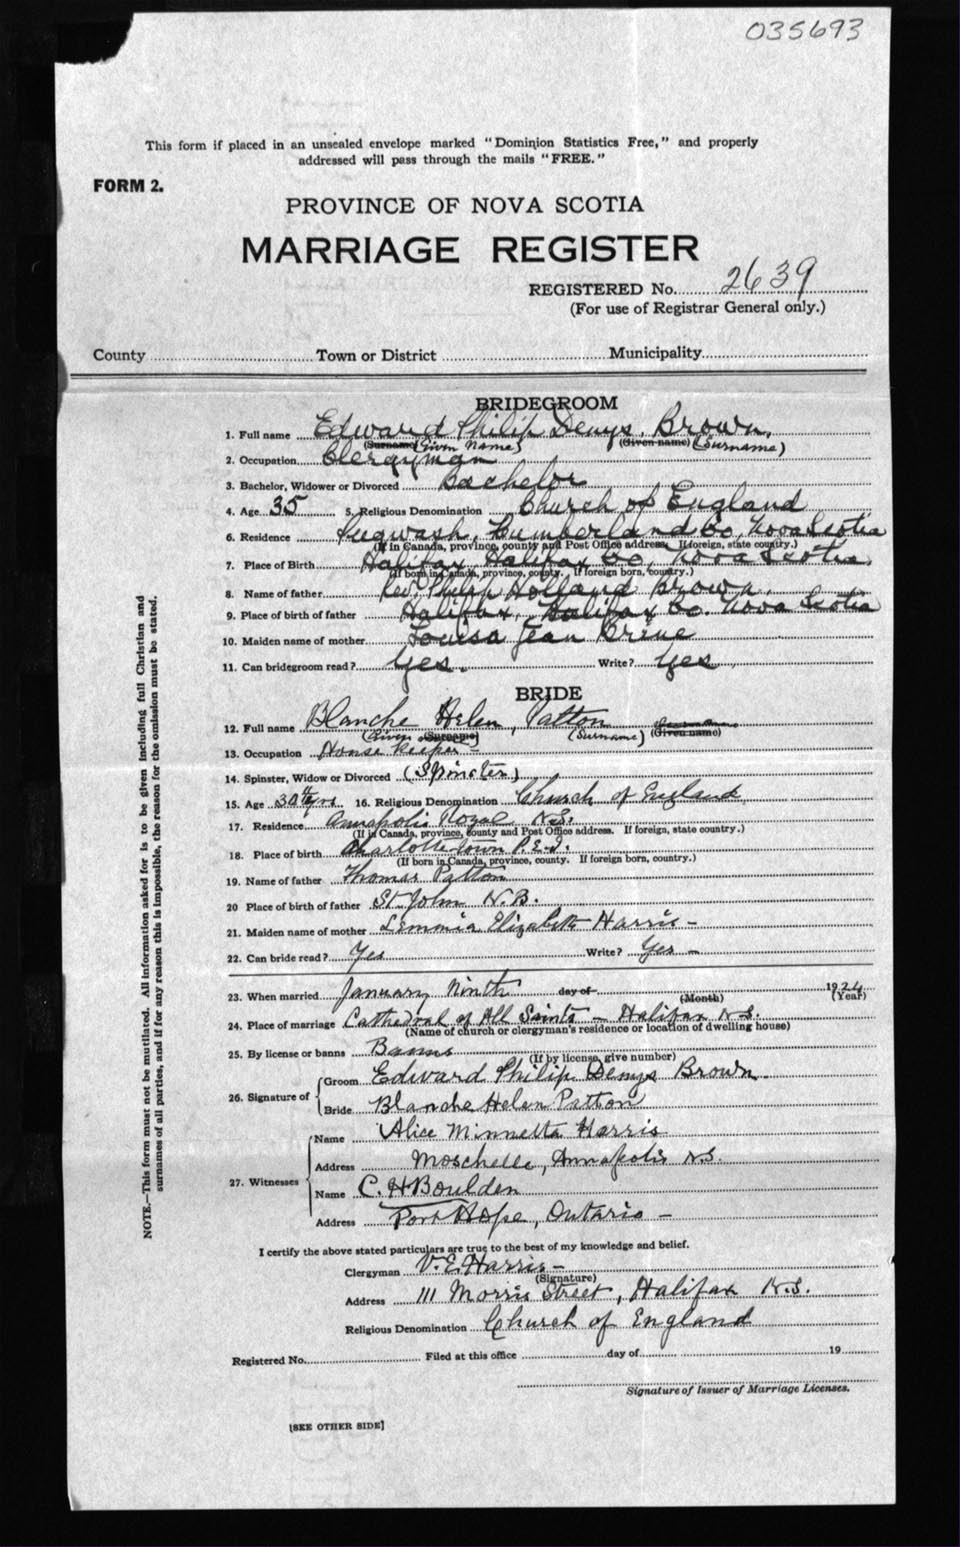 035693
This form if placed in an unsealed envelope marked "Dominion Statistics Free," and properly
addressed will pass through the mails "FREE."
FORM 2.
PROVINCE OF NOVA SCOTIA
MARRIAGE REGISTER
REGISTERED No. 2639
(For use of Registrar General only.)
County Town or District Municipality
BRIDEGROOM
1. Full name Edward Philip Denys Brown,
(Surname) (Given Name) (Given name) (Surname)
2. Occupation Clergyman
3. Bachelor, Widower or Divorced Bachelor
4. Age 35 5. Religious Denomination Church of England
6. Residence Pugwash, Cumberland Co, Nova Scotia
(If in Canada, province, county and Post Office address. If foreign, state country.)
7. Place of Birth Halifax, Halifax Co, Nova Scotia
(If born in Canada, province, county. If foreign born, country.)
8. Name of father Rev. Philip Holland Brown,
9. Place of birth of father Halifax, Halifax Co. Nova Scotia
10. Maiden name of mother Louisa Jean Brine
11. Can bridegroom read? Yes. Write? Yes
BRIDE
12. Full name Blanche Helen, Patton
(Given (Surname) (Surname) (Given name)
13. Occupation House keeper -
14. Spinster, Widow or Divorced (Spinster)
15. Age 30 yrs 16. Religious Denomination Church of England
17. Residence Annapolis Royal N.S.
(If in Canada, province, county and Post Office address. If foreign, state country.)
18. Place of birth Charlottetown P.E.I.
(If born in Canada, province, county. If foreign born, country.)
19. Name of father Thomas Patton
20 Place of birth of father St John N.B.
21. Maiden name of mother Elizabeth Harris -
22. Can bride read? Yes Write? Yes -
23. When married January Ninth day of 1924
(Month) (Year)
24. Place of marriage Cathedral of All Saints - Halifax N.S.
(Name of church or clergyman's residence or location of dwelling house)
25. By license or banns Banns
(If by license, give number)
26. Signature of Groom Edward Philip Denys Brown
Bride Blanche Helen Patton
27. Witnesses Name Alice Minnetta Harris
Address Moschelle, Annapolis N.S.
Name C. H Boulden
Address Port Hope, Ontario -
I certify the above stated particulars are true to the best of my knowledge and belief.
Clergyman V. E. Harris -
(Signature)
Address 111 Morris Street, Halifax N.S.
Religious Denomination Church of England
Registered No. Filed at this office day of 19
Signature of Issuer of Marriage Licenses.
[SEE OTHER SIDE]
NOTE.—This form must not be mutilated. All information asked for is to be given including full Christian and
surnames of all parties, and if for any reason this is impossible, the reason for the omission must be stated.